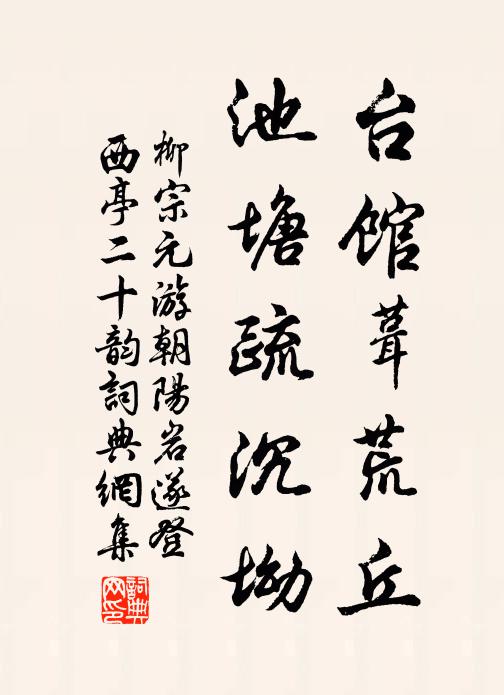 台馆葺荒丘
池塘疏沉坳
柳宗元游朝陽岩遂登
西亭二十韵詞典網集